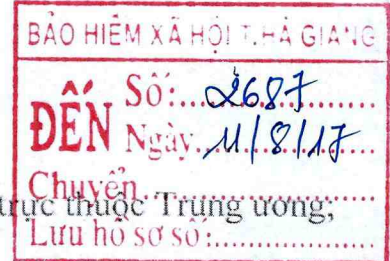 BẢO HIỂM XÃ HỘI T.HÀ GIANG
ĐẾN
Số:...2687...
Ngày.11/8/17
Chuyển
trực thuộc Trung ương;
Lưu hồ sơ số:...